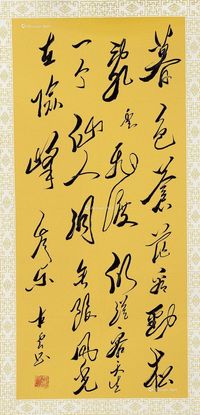 暮色蒼茫看勁松
亂雲飛渡仍從容天生
一个仙人洞無限風光
在險峰